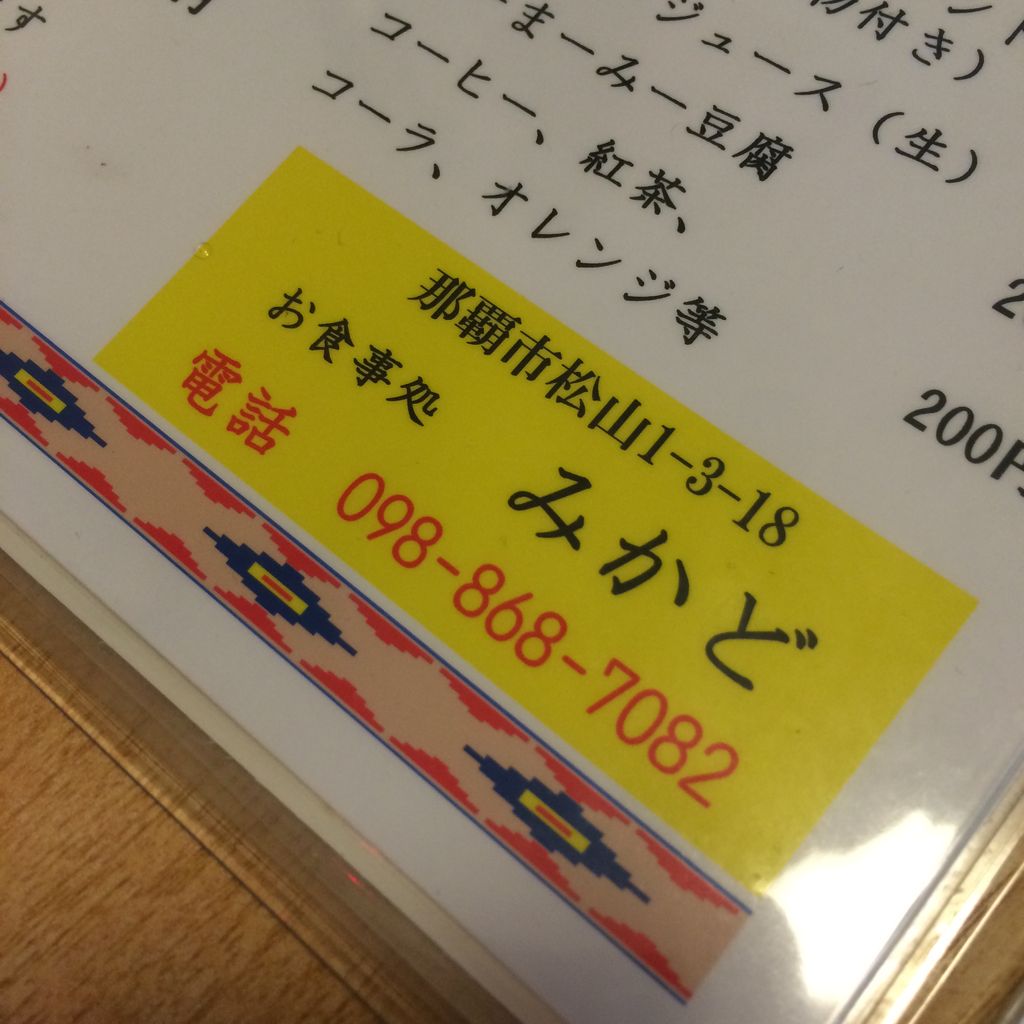 物付き)
ジュース (生)
まーみー豆腐
コーヒー、紅茶、
コーラ、オレンジ等
200円
那覇市松山1-3-18
お食事処
みかど
電話 098-868-7082